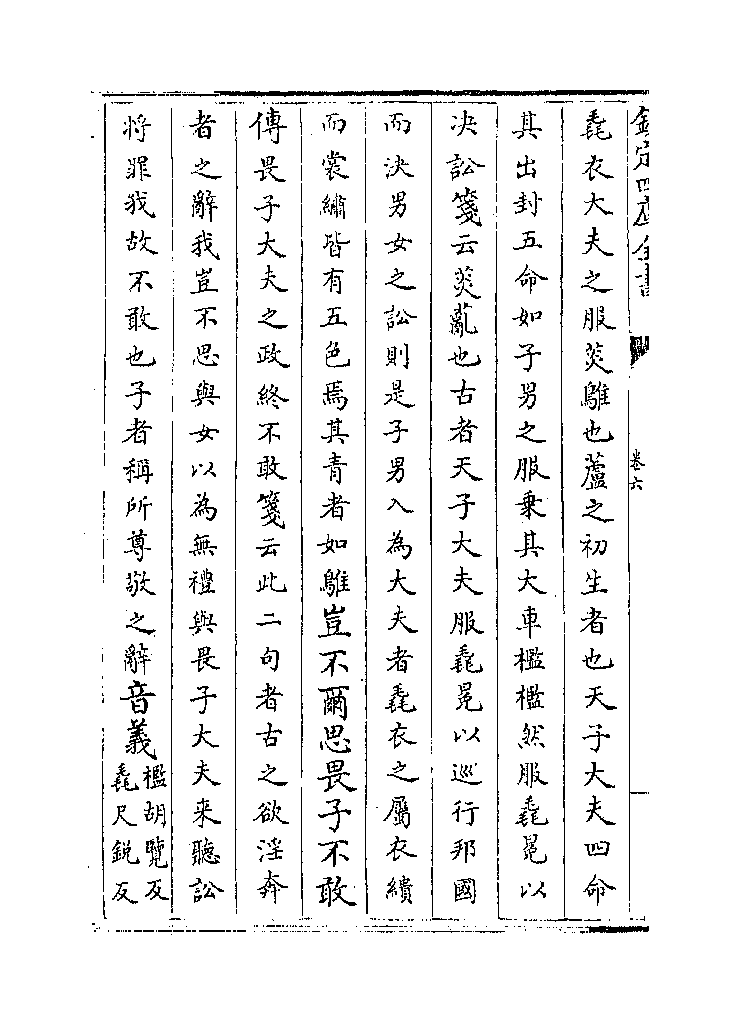 欽定四庫全書
卷六
毳衣大夫之服菼鵻也蘆之初生者也天子大夫四命
其出封五命如子男之服乗其大車檻檻然服毳冕以
决訟箋云菼薍也古者天子大夫服毳冕以巡行邦國
而決男女之訟則是子男入為大夫者毳衣之屬衣繢
而裳繡皆有五色焉其青者如鵻豈不爾思畏子不敢
傳畏子大夫之政終不敢箋云此二句者古之欲淫奔
者之辭我豈不思與女以為無禮與畏子大夫来聽訟
將罪我故不敢也子者稱所尊敬之辭音義
檻胡覽反
毳尺銳反